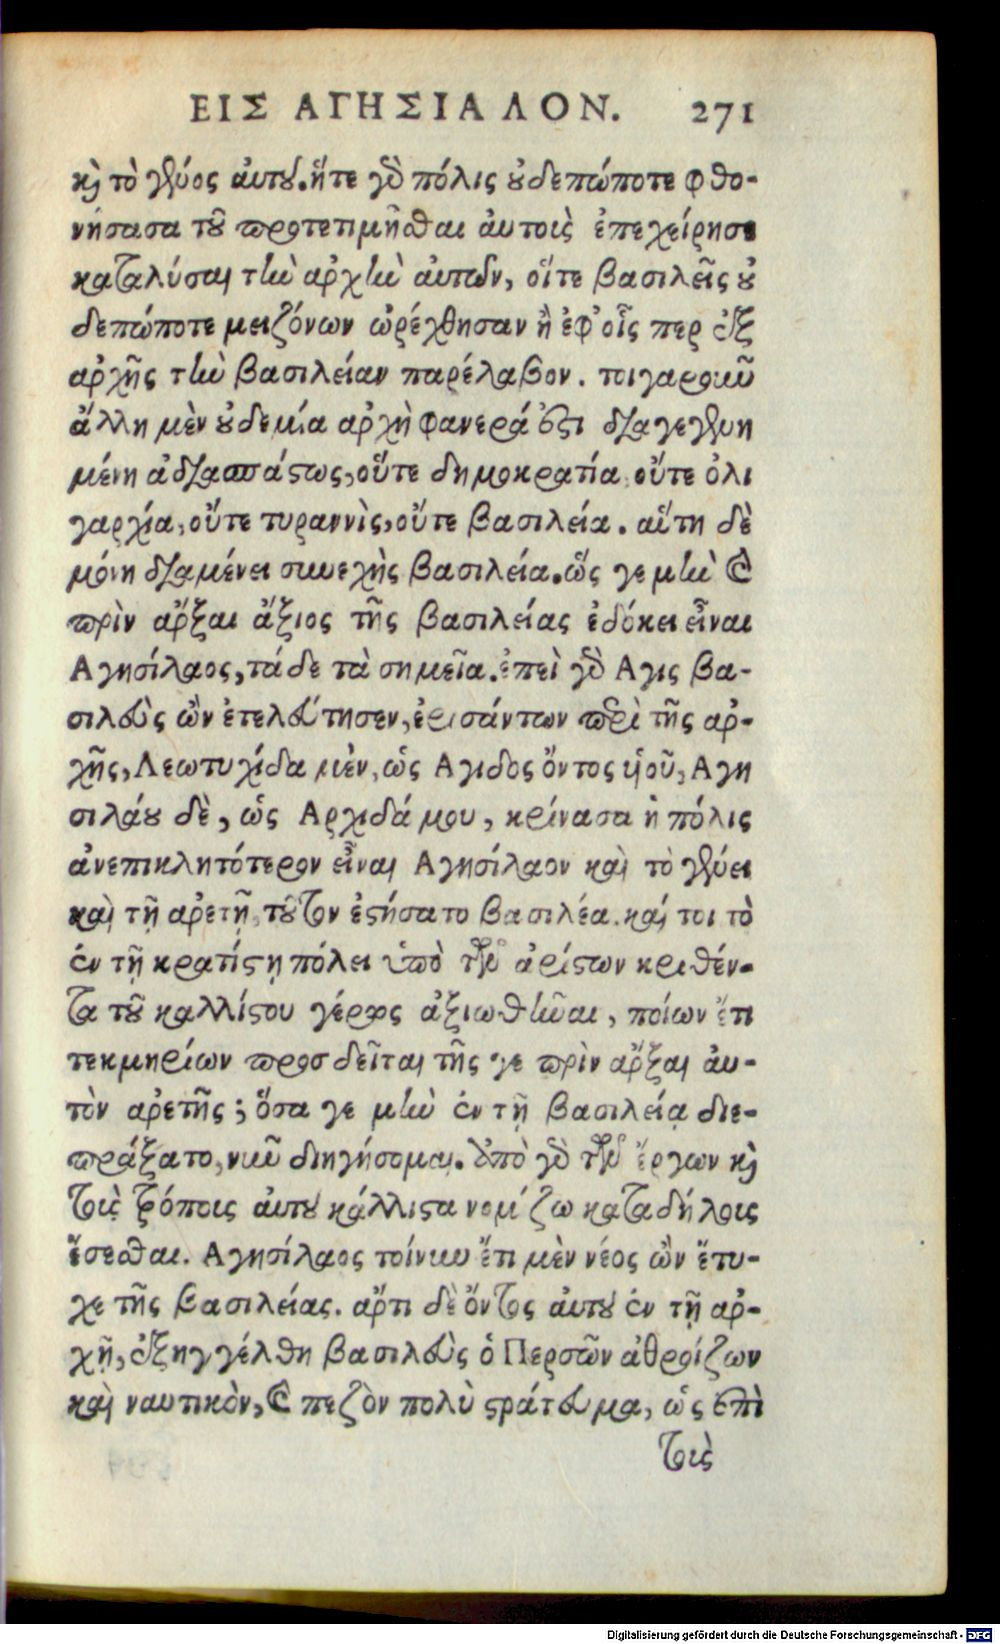 ΕΙΣ ΑΓΗΣΙΑΛΟΝ. 271
καὶ τὸ γένος αὐτοῦ. ἥτε γὰρ πόλις οὐδεπώποτε φθο-
νήσασα τοῦ προτετιμῆσθαι αὐτοὶς ἐπεχείρησε
καταλύσαι τὴν ἀρχὴν αὐτῶν, οἵτε βασιλεῖς οὐ
δεπώποτε μειζόνων ὠρέχθησαν ἢ ἐφ' οἷς περ ἐξ
ἀρχῆς τὴν βασιλείαν παρέλαβον. τοιγαροῦν
ἄλλη μὲν οὐδεμία ἀρχὴ φανερά ἐστι διαγεγενη
μένη ἀδιασπάστως, οὔτε δημοκρατία οὔτε ὀλι
γαρχία, οὔτε τυραννὶς, οὔτε βασιλεία. αὕτη δὲ
μόνη διαμένει συνεχὴς βασιλεία. ὥς γε μὴν καὶ
πρὶν ἄρξαι ἄξιος τῆς βασιλείας ἐδόκει εἶναι
Αγησίλαος, τά δε τὰ σημεῖα. ἐπεὶ γὰρ Αγις βα-
σιλεὺς ὢν ἐτελεύτησεν, ἐρισάντων περὶ τῆς ἀρ-
χῆς, Λεωτυχίδα μὲν, ὡς Αγιδος ὄντος ὑιοῦ, Αγη
σιλάου δὲ, ὡς Αρχιδάμου, κρίνασα ἡ πόλις
ἀνεπικλητότερον εἶναι Αγησίλαον καὶ τὸ γένει
καὶ τῇ ἀρετῇ, τοῦτον ἐστήσατο βασιλέα. καί τοι τὸ
ἐν τῇ κρατίστῃ πόλει ὑπὸ τῶν ἀρίστων κριθέν-
τα τοῦ καλλίστου γέρως ἀξιωθῆναι, ποίων ἔτι
τεκμηρίων προσδεῖται τῆς γε πρὶν ἄρξαι αὐ-
τὸν ἀρετῆς; ὅσα γε μὴν ἐν τῇ βασιλείᾳ διε-
πράξατο, νῦν διηγήσομαι. ἀπὸ γὰρ τῶν ἔργων καὶ
τοὶς τρόποις αὐτοῦ κάλλιστα νομίζω καταδήλοις
ἔσεσθαι. Αγησίλαος τοίνυν ἔτι μὲν νέος ὢν ἔτυ-
χε τῆς βασιλείας. ἄρτι δὲ ὄντος αὐτοῦ ἐν τῇ ἀρ-
χῇ, ἐξηγγέλθη βασιλεὺς ὁ Περσῶν ἀθροίζων
καὶ ναυτικὸν, καὶ πεζὸν πολὺ στράτευμα, ὡς ἐπὶ
τοὶς
Digitalisierung gefördert durch die Deutsche Forschungsgemeinschaft - DFG